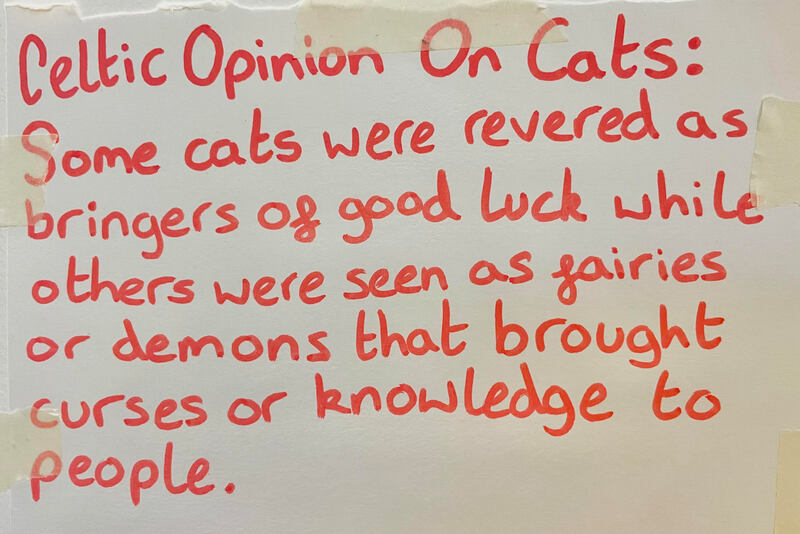 Celtic Opinion On Cats:
Some cats were revered as
bringers of good luck while
others were seen as fairies
or demons that brought
curses or knowledge to
people.